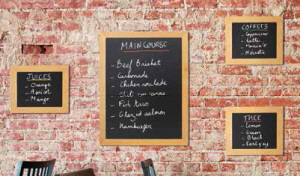 JUICES
- Orange
- Apricot
- Mango
MAIN COURSE
- Beef Brisket
- Carbonade
- Chicken roulade
- Pork taco
- Glazed salmon
- Hamburger
COFFEES
- Cappuccino
- Latte
- Macchiato
TEE
- Lemon
- Green
- Black
- Earl grey